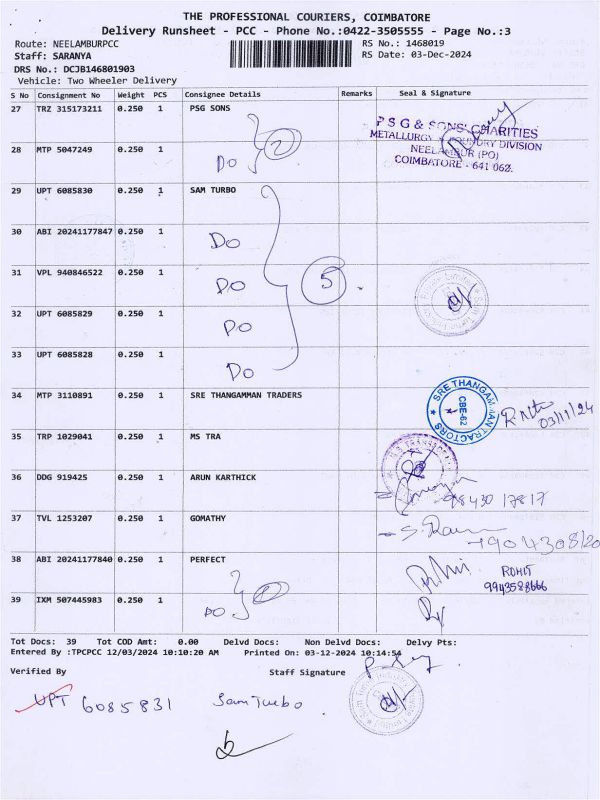 THE PROFESSIONAL COURIERS, COIMBATORE
Delivery Runsheet - PCC - Phone No.:0422-3505555 - Page No.:3
Route: NEELAMBURPCC RS No.: 1468019
Staff: SARANYA RS Date: 03-Dec-2024
DRS No.: DCJB146801903
Vehicle: Two Wheeler Delivery
S No Consignment No Weight PCS Consignee Details Remarks Seal & Signature
27 TRZ 315173211 0.250 1 PSG SONS
PSG & SONS' CHARITIES
METALLURGY & FOUNDRY DIVISION
NEELAMBUR (PO)
COIMBATORE - 641 062.
28 MTP 5047249 0.250 1 DO 2
29 UPT 6085830 0.250 1 SAM TURBO
30 ABI 20241177847 0.250 1 DO
31 VPL 940846522 0.250 1 DO 5
32 UPT 6085829 0.250 1 DO
33 UPT 6085828 0.250 1 DO
34 MTP 3110891 0.250 1 SRE THANGAMMAN TRADERS
SRE THANGAMMAN TRACTORS
CBE-62
03/11/24
35 TRP 1029041 0.250 1 MS TRA
36 DDG 919425 0.250 1 ARUN KARTHICK
98430 17817
37 TVL 1253207 0.250 1 GOMATHY
38 ABI 20241177840 0.250 1 PERFECT
ROHIT
9943588666
39 IXM 507445983 0.250 1 DO
Tot Docs: 39 Tot COD Amt: 0.00 Delvd Docs: Non Delvd Docs: Delvy Pts:
Entered By :TPCPCC 12/03/2024 10:10:20 AM Printed On: 03-12-2024 10:14:54
Verified By Staff Signature
UPT 6085831 Sam Turbo